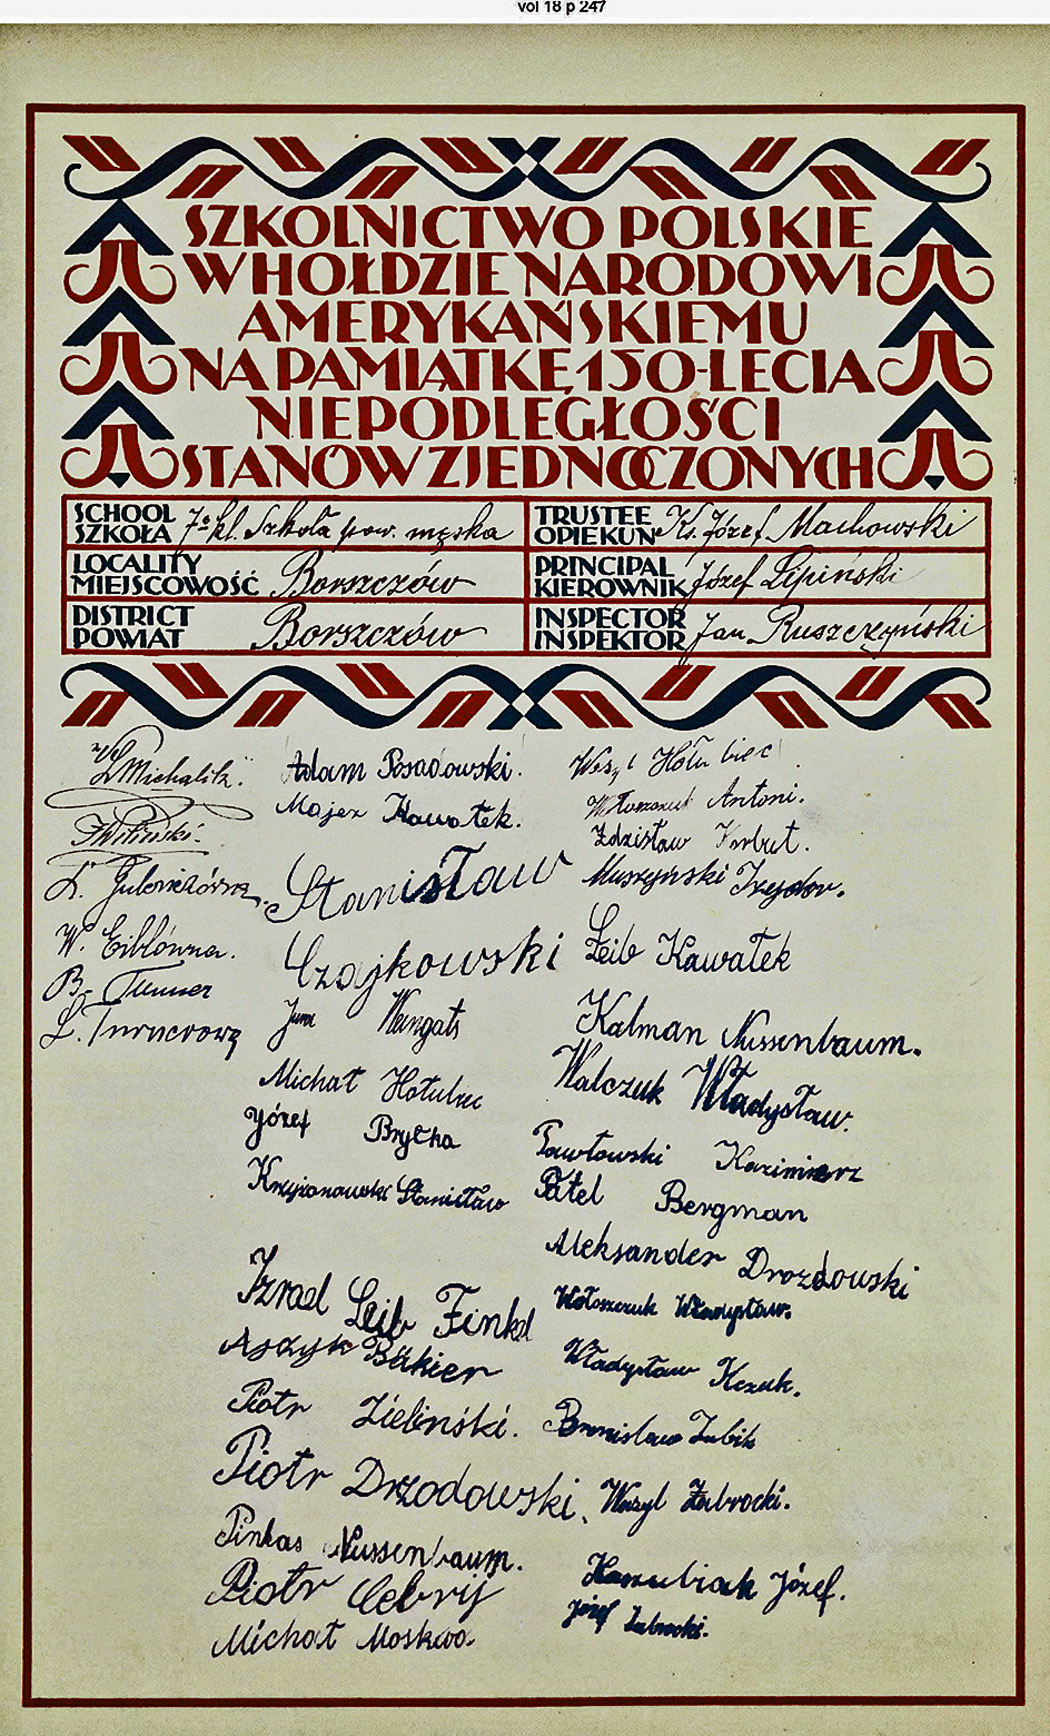 vol 18 p 247
SZKOLNICTWO POLSKIE
W HOŁDZIE NARODOWI
AMERYKAŃSKIEMU
NA PAMIĄTKĘ 150-LECIA
NIEPODLEGŁOŚCI
STANÓW ZJEDNOCZONYCH
SCHOOL
SZKOŁA 7o kl. Szkoła pow. męska
TRUSTEE
OPIEKUN Ks. Józef Machowski
LOCALITY
MIEJSCOWOŚĆ Borszczów
PRINCIPAL
KIEROWNIK Józef Lipiński
DISTRICT
POWIAT Borszczów
INSPECTOR
INSPEKTOR Jan Ruszczyński
Michalik.
W. Eiblówna.
B. Turner
L. Turnerowa
Adam Posadowski.
Majer Kawatek.
Stanisław
Czajkowski
Michał Hołubec
Józef Brycha
Krzyżanowski Stanisław
Izrael Leib Finkel
Aszyk Bakier
Piotr Zieliński.
Piotr Drzodowski.
Pinkas Nussenbaum.
Piotr Cebrij
Michał Moskwa.
Hołubiec
Antoni.
Zdzisław
Muszyński
Leib Kawatek
Kalman Nussenbaum.
Walczuk Władysław.
Pawłowski Kazimierz
Patel Bergman
Aleksander Drozdowski
Wołoszczuk Władysław.
Władysław
Bronisław Zubik
Wasyl Zabrocki.
Józef.
Józef Zabrocki.